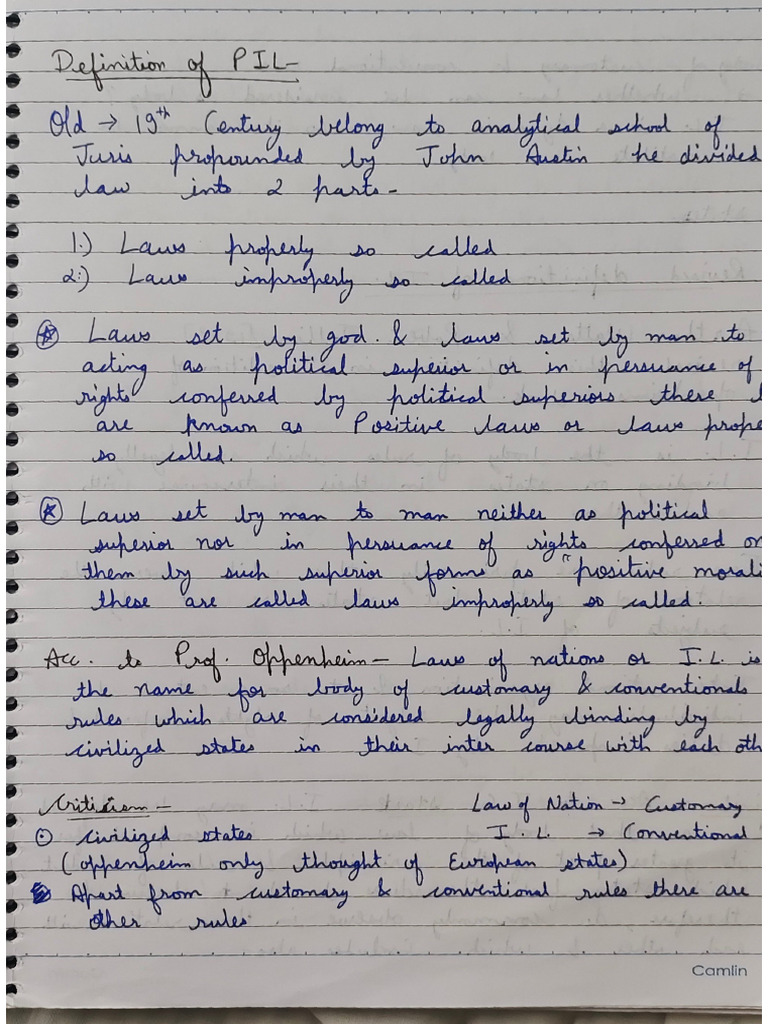 Definition of PIL-
Old → 19th Century belong to analytical school of
Juris propounded by John Austin he divided
law into 2 parts-
1.) Laws properly so called
2.) Laws improperly so called
Laws set by god. & laws set by man to
acting as political superior or in persuance of
rights conferred by political superiors there
are known as Positive laws or laws prope
so called.
Laws set by man to man neither as political
superior nor in persuance of rights conferred on
them by such superior forms as "positive morali
these are called laws improperly so called.
Acc. to Prof. Oppenheim- Laws of nations or I.L. is
the name for body of customary & conventionals
rules which are considered legally binding by
civilized states in their inter course with each oth
Criticism-
Law of Nation → Customary
civilized states
I.L. → Conventional
(oppenheim only thought of European states)
Apart from customary & conventional rules there are
other rules
Camlin